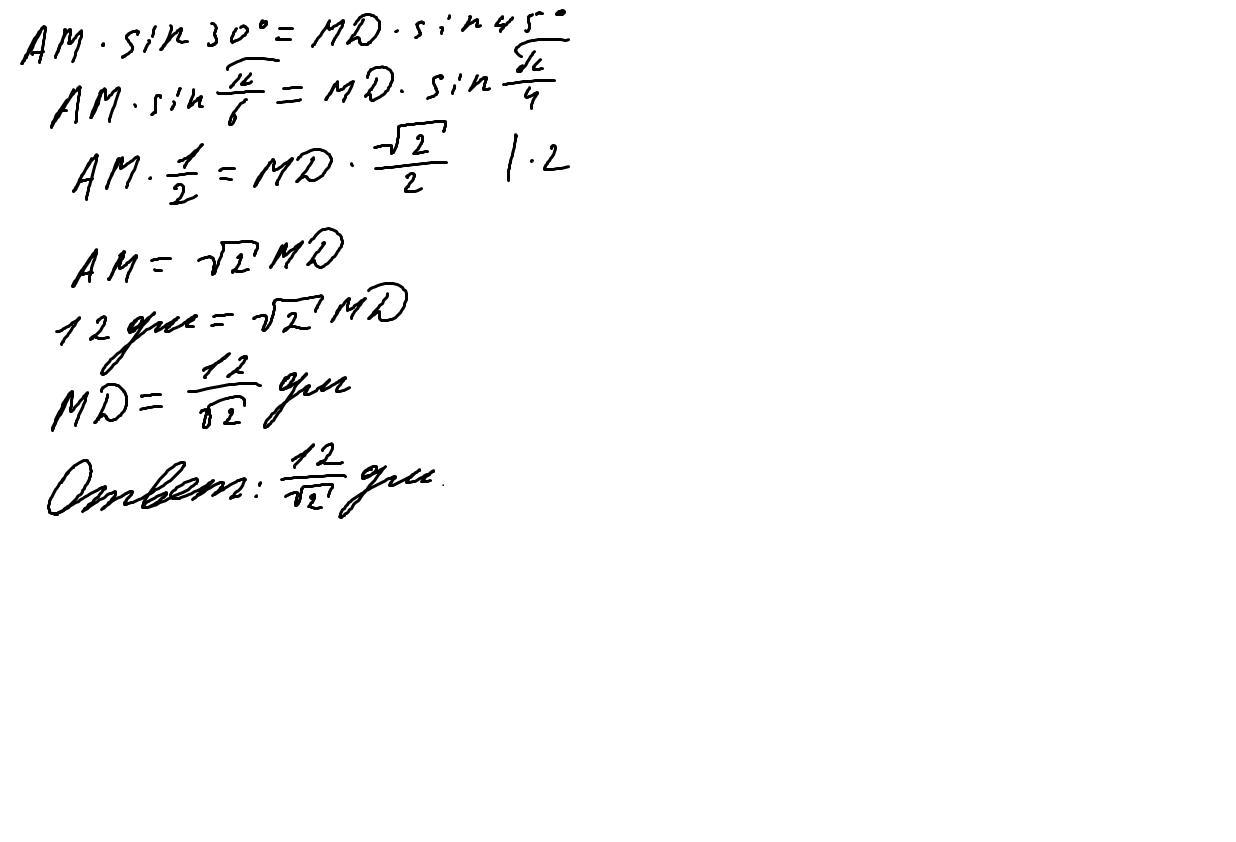 AM · sin 30° = MD · sin 45°
AM · sin π/6 = MD · sin π/4
AM · 1/2 = MD · √2/2 | · 2
AM = √2 MD
12 дм = √2 MD
MD = 12/√2 дм
Ответ: 12/√2 дм.